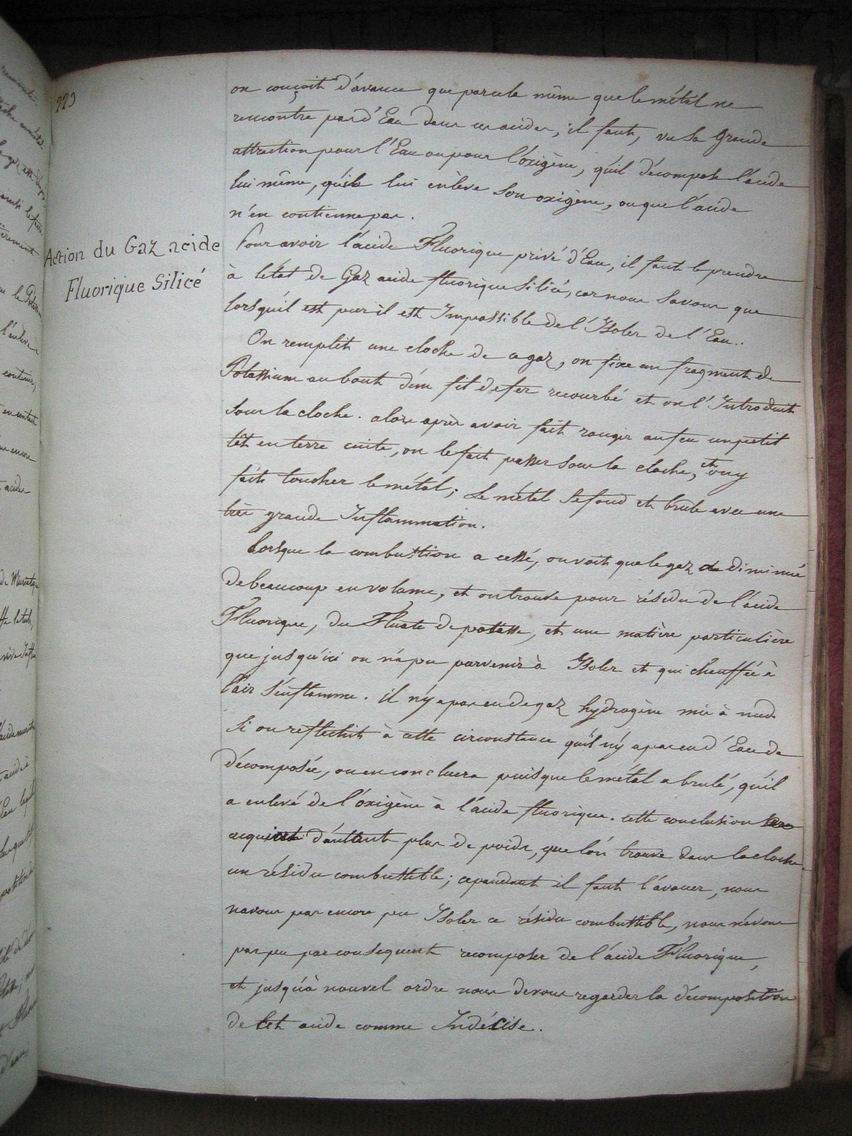 223
on conçoit d'avance que parcela même que le métal ne
rencontre pas d'Eau dans ces acides, il faut, vu sa grande
attraction pour l'Eau ou pour l'oxigène, qu'il décompose l'acide
lui même, qu'il lui enlève son oxigène, ou que l'acide
n'en contienne pas.
Action du Gaz acide
Fluorique Silicé
Pour avoir l'acide Fluorique privé d'Eau, il faut le prendre
à letat de Gaz acide fluorique silicé, car nous savons que
lorsqu'il est pur il est Impossible de l'Isoler de l'Eau.
On remplit une cloche de ce gaz, on fixe un fragment de
Potassium au bout d'un fil de fer recourbé et on l'Introduit
sous la cloche. alors après avoir fait rougir au feu un petit
têt en terre cuite, on le fait passer sous la cloche, et on y
fait toucher le métal; Le métal se fond et brule avec une
très grande Inflammation.
Lorsque la combustion a cessé, on voit que le gaz a diminué
de beaucoup en volume, et on trouve pour résidu de l'acide
Fluorique, du Fluate de potasse, et une matière particulière
que jusqu'ici on n'a pu parvenir à Isoler et qui chauffée à
l'air s'enflamme. il n'y a pas eu de gaz hydrogène mis à nud.
Si on reflechit à cette circonstance qu'il n'y a pas eu d'Eau de
décomposée, on en concluera puisque le métal a brulé, qu'il
a enlevé de l'oxigène à l'acide fluorique. cette conclusion
acquiert d'autant plus de poids, que l'on trouve dans la cloche
un résidu combustible; cependant il faut l'avouer, nous
n'avons pas encore pu Isoler ce résidu combustible, nous n'avons
pas pu par consequent recomposer de l'acide Fluorique,
et jusqu'à nouvel ordre nous devons regarder la décomposition
de cet acide comme Indécise.